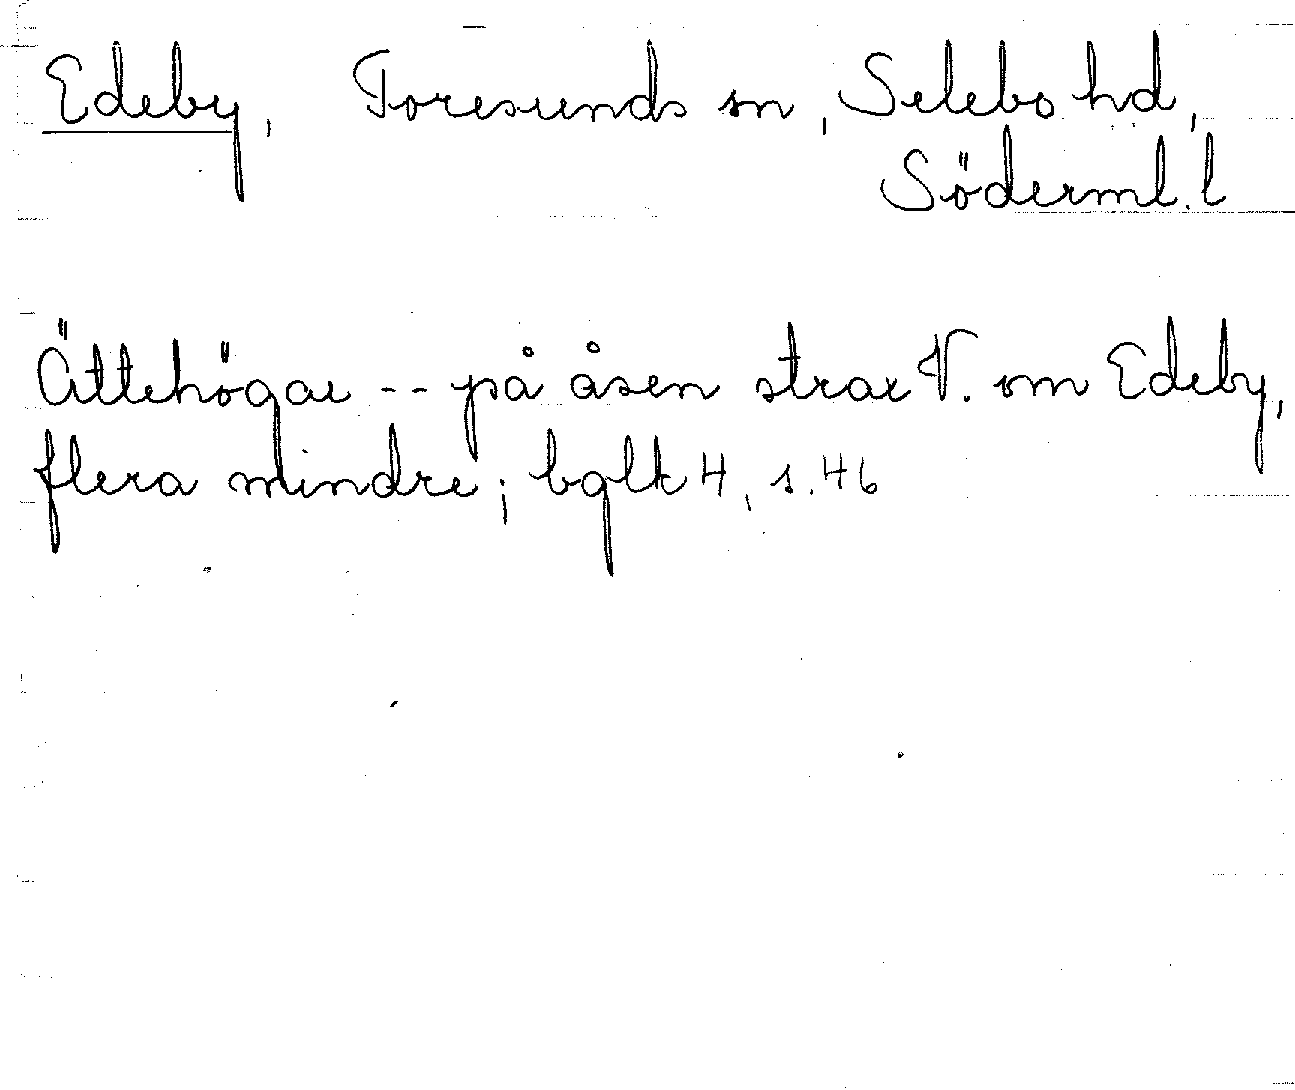 Edeby, Toresunds sn, Selebo hd,
Söderml. l
Ättehögar -- på åsen strax V. om Edeby,
flera mindre; bglk 4, s. 46